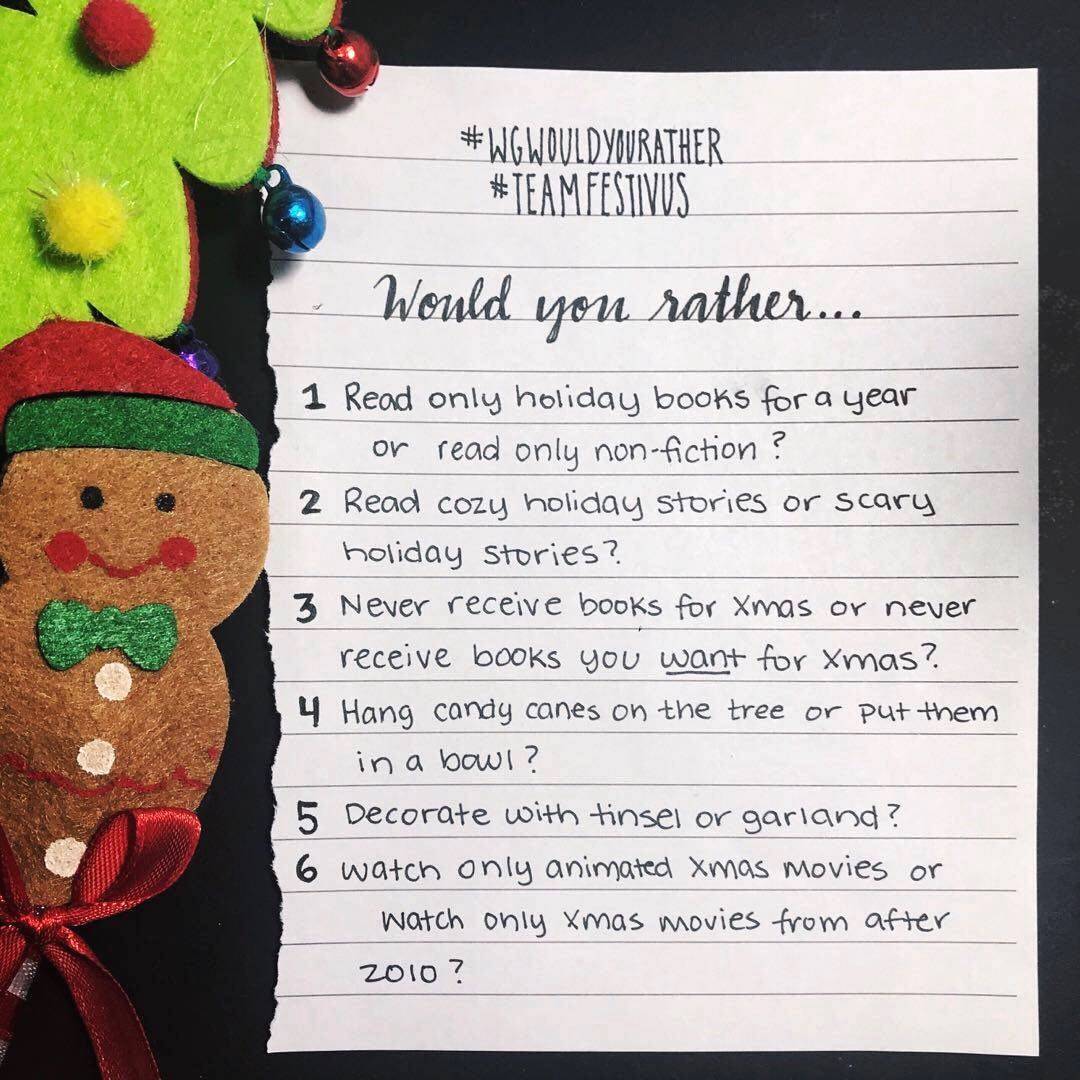 #WGWOULDYOURATHER
#TEAMFESTIVUS
Would you rather...
1 Read only holiday books for a year
or read only non-fiction?
2 Read cozy holiday stories or scary
holiday stories?
3 Never receive books for Xmas or never
receive books you want for Xmas?
4 Hang candy canes on the tree or put them
in a bowl?
5 Decorate with tinsel or garland?
6 watch only animated Xmas movies or
watch only Xmas movies from after
2010?